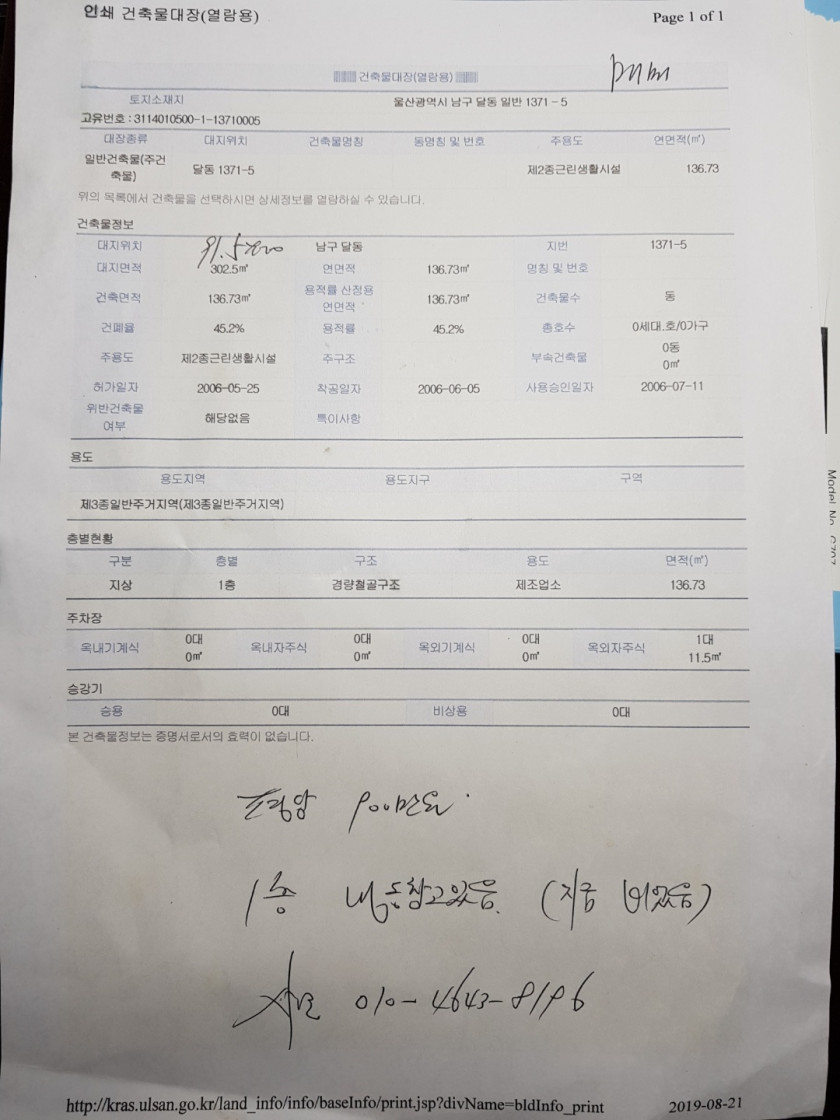 인쇄 건축물대장(열람용)
Page 1 of 1
건축물대장(열람용)
토지소재지 울산광역시 남구 달동 일반 1371 - 5
고유번호 : 3114010500-1-13710005
대장종류 대지위치 건축물명칭 동명칭 및 번호 주용도 연면적(㎡)
일반건축물(주건축물) 달동 1371-5 제2종근린생활시설 136.73
위의 목록에서 건축물을 선택하시면 상세정보를 열람하실 수 있습니다.
건축물정보
대지위치 남구 달동 지번 1371-5
91.5
대지면적 302.5㎡ 연면적 136.73㎡ 명칭 및 번호
건축면적 136.73㎡ 용적률 산정용 연면적 136.73㎡ 건축물수 동
건폐율 45.2% 용적률 45.2% 총호수 0세대.호/0가구
주용도 제2종근린생활시설 주구조 부속건축물 0동 0㎡
허가일자 2006-05-25 착공일자 2006-06-05 사용승인일자 2006-07-11
위반건축물 여부 해당없음 특이사항
용도
용도지역 용도지구 구역
제3종일반주거지역(제3종일반주거지역)
층별현황
구분 층별 구조 용도 면적(㎡)
지상 1층 경량철골구조 제조업소 136.73
주차장
옥내기계식 0대 0㎡ 옥내자주식 0대 0㎡ 옥외기계식 0대 0㎡ 옥외자주식 1대 11.5㎡
승강기
승용 0대 비상용 0대
본 건축물정보는 증명서로서의 효력이 없습니다.
900만원
1층 냉동창고있음. (지금 비었음)
010-4643-8196
http://kras.ulsan.go.kr/land_info/info/baseInfo/print.jsp?divName=bldInfo_print
2019-08-21
Model No.